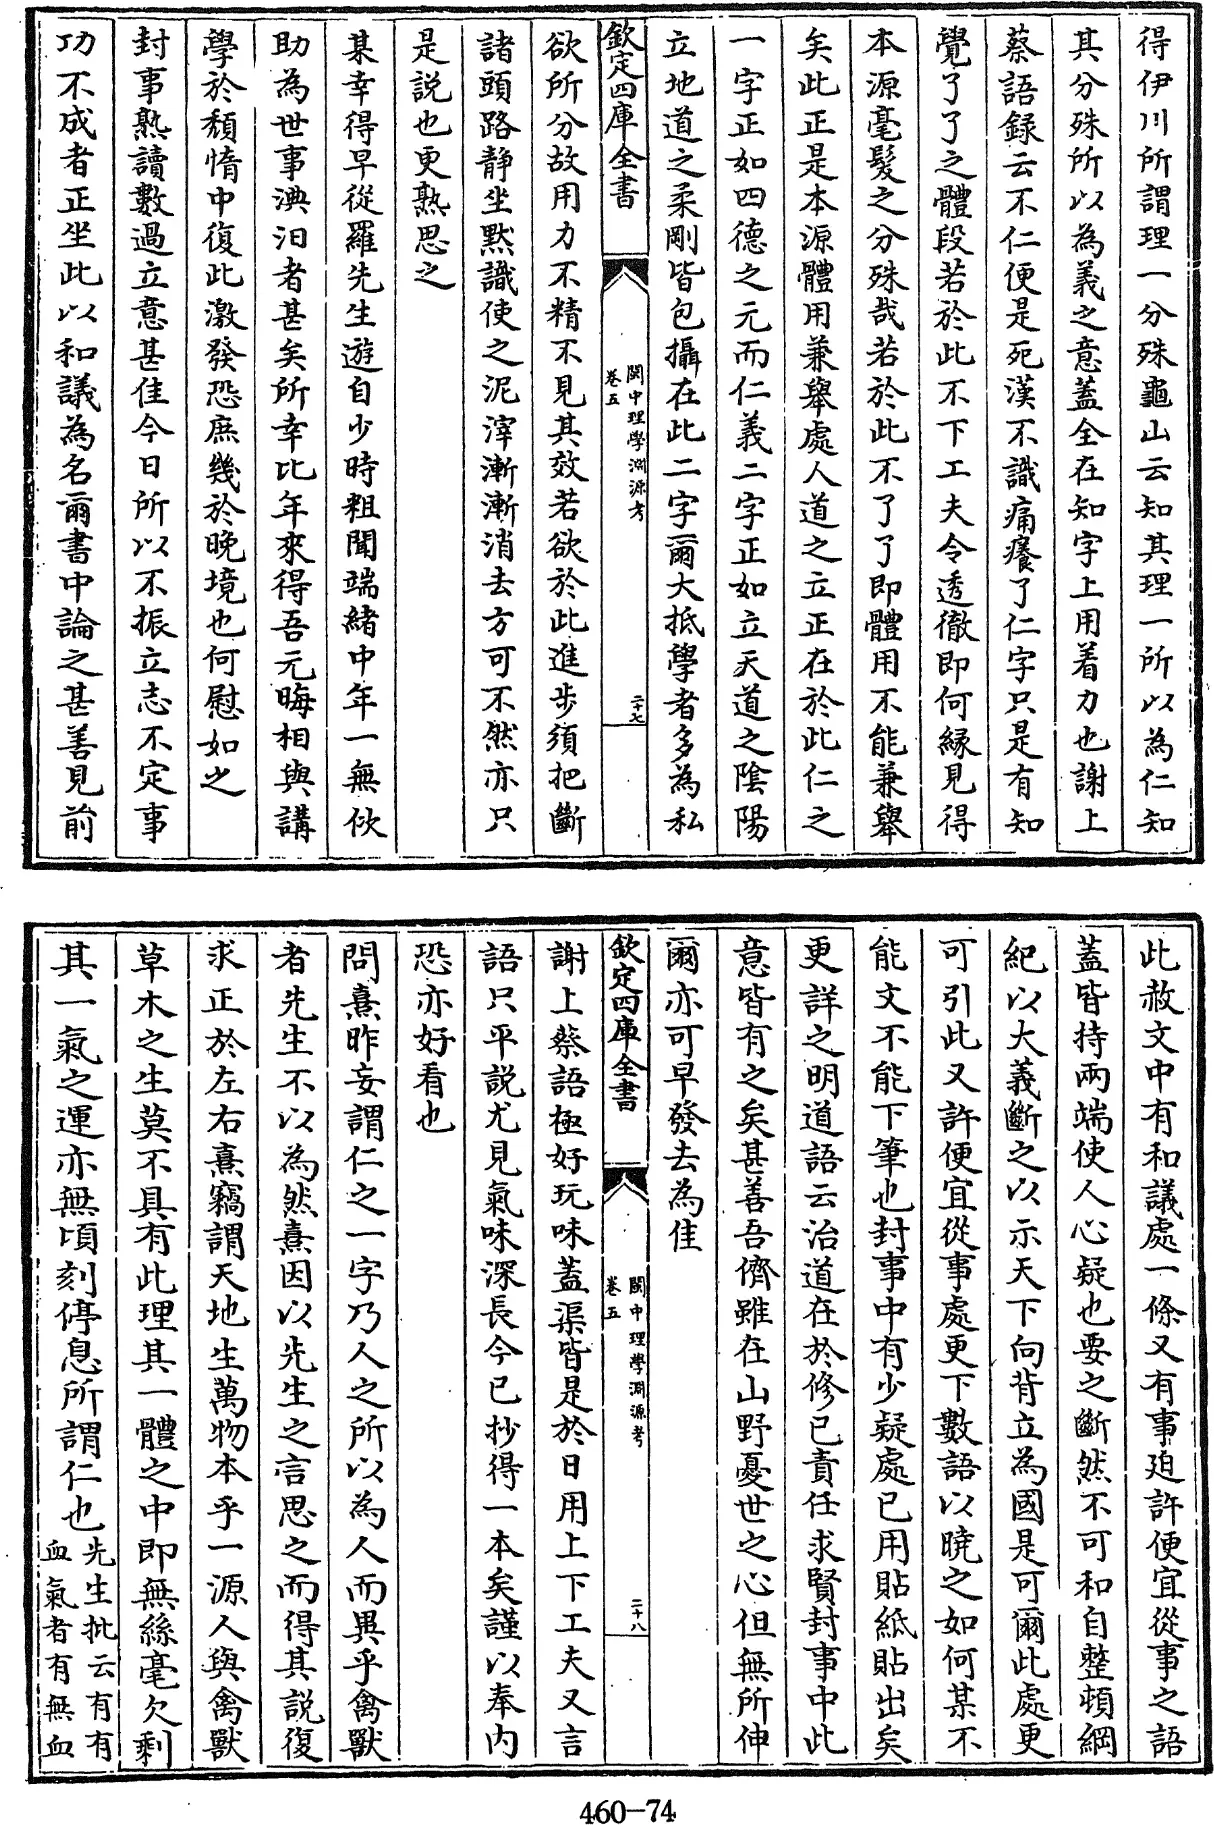 得伊川所謂理一分殊龜山云知其理一所以為仁知
其分殊所以為義之意蓋全在知字上用着力也謝上
蔡語録云不仁便是死漢不識痛癢了仁字只是有知
覺了了之體段若於此不下工夫令透徹即何縁見得
本源毫髮之分殊哉若於此不了了即體用不能兼舉
矣此正是本源體用兼舉處人道之立正在於此仁之
一字正如四德之元而仁義二字正如立天道之陰陽
立地道之柔剛皆包攝在此二字爾大抵學者多為私
欽定四庫全書
閩中理學淵源考
卷五
二十七
欲所分故用力不精不見其效若欲於此進步須把斷
諸頭路静坐黙識使之泥滓漸漸消去方可不然亦只
是説也更熟思之
某幸得早從羅先生遊自少時粗聞端緒中年一無佽
助為世事淟汩者甚矣所幸比年來得吾元晦相與講
學於頽惰中復此激發恐庶幾於晚境也何慰如之
封事熟讀數過立意甚佳今日所以不振立志不定事
功不成者正坐此以和議為名爾書中論之甚善見前
此赦文中有和議處一條又有事廹許便宜從事之語
蓋皆持兩端使人心疑也要之斷然不可和自整頓綱
紀以大義斷之以示天下向背立為國是可爾此處更
可引此又許便宜從事處更下數語以曉之如何某不
能文不能下筆也封事中有少疑處已用貼紙貼出矣
更詳之明道語云治道在於修已責任求賢封事中此
意皆有之矣甚善吾儕雖在山野憂世之心但無所伸
爾亦可早發去為佳
欽定四庫全書
閩中理學淵源考
卷五
二十八
謝上蔡語極好玩味蓋渠皆是於日用上下工夫又言
語只平説尤見氣味深長今已抄得一本矣謹以奉内
恐亦好看也
問熹昨妄謂仁之一字乃人之所以為人而異乎禽獸
者先生不以為然熹因以先生之言思之而得其説復
求正於左右熹竊謂天地生萬物本乎一源人與禽獸
草木之生莫不具有此理其一體之中即無絲毫欠剰
其一氣之運亦無頃刻停息所謂仁也先生批云有有
血氣者有無血
460-74